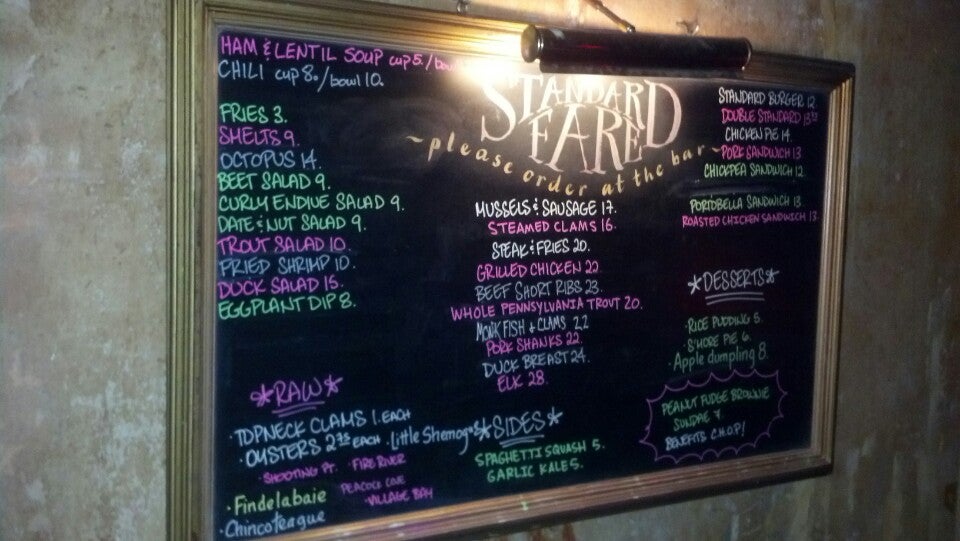 HAM & LENTIL SOUP cup 5./bowl
CHILI cup 8./bowl 10.
FRIES 3.
SMELTS 9.
OCTOPUS 14.
BEET SALAD 9.
CURLY ENDIVE SALAD 9.
DATE & NUT SALAD 9.
TROUT SALAD 10.
FRIED SHRIMP 10.
DUCK SALAD 15.
EGGPLANT DIP 8.
*RAW*
·TOPNECK CLAMS 1. EACH
·OYSTERS 2.75 EACH
·Little Shemog's
·SHOOTING PT.
·FIRE RIVER
PEACOCK COVE
·Findelabaie
·VILLAGE BAY
·Chincoteague
STANDARD
FARE
~please order at the bar~
MUSSELS & SAUSAGE 17.
STEAMED CLAMS 16.
STEAK & FRIES 20.
GRILLED CHICKEN 22
BEEF SHORT RIBS 23.
WHOLE PENNSYLVANIA TROUT 20.
MONKFISH & CLAMS 22
PORK SHANKS 22.
DUCK BREAST 24.
ELK 28.
*SIDES*
SPAGHETTI SQUASH 5.
GARLIC KALE 5.
STANDARD BURGER 12.
DOUBLE STANDARD
CHICKEN PIE 14.
PORK SANDWICH 13
CHICKPEA SANDWICH 12
PORTOBELLA SANDWICH 13.
ROASTED CHICKEN SANDWICH 13.
*DESSERTS*
·RICE PUDDING 5.
S'MORE PIE 6.
·Apple dumpling 8.
PEANUT FUDGE BROWNIE
SUNDAE 7.
BENEFITS C.H.O.P!